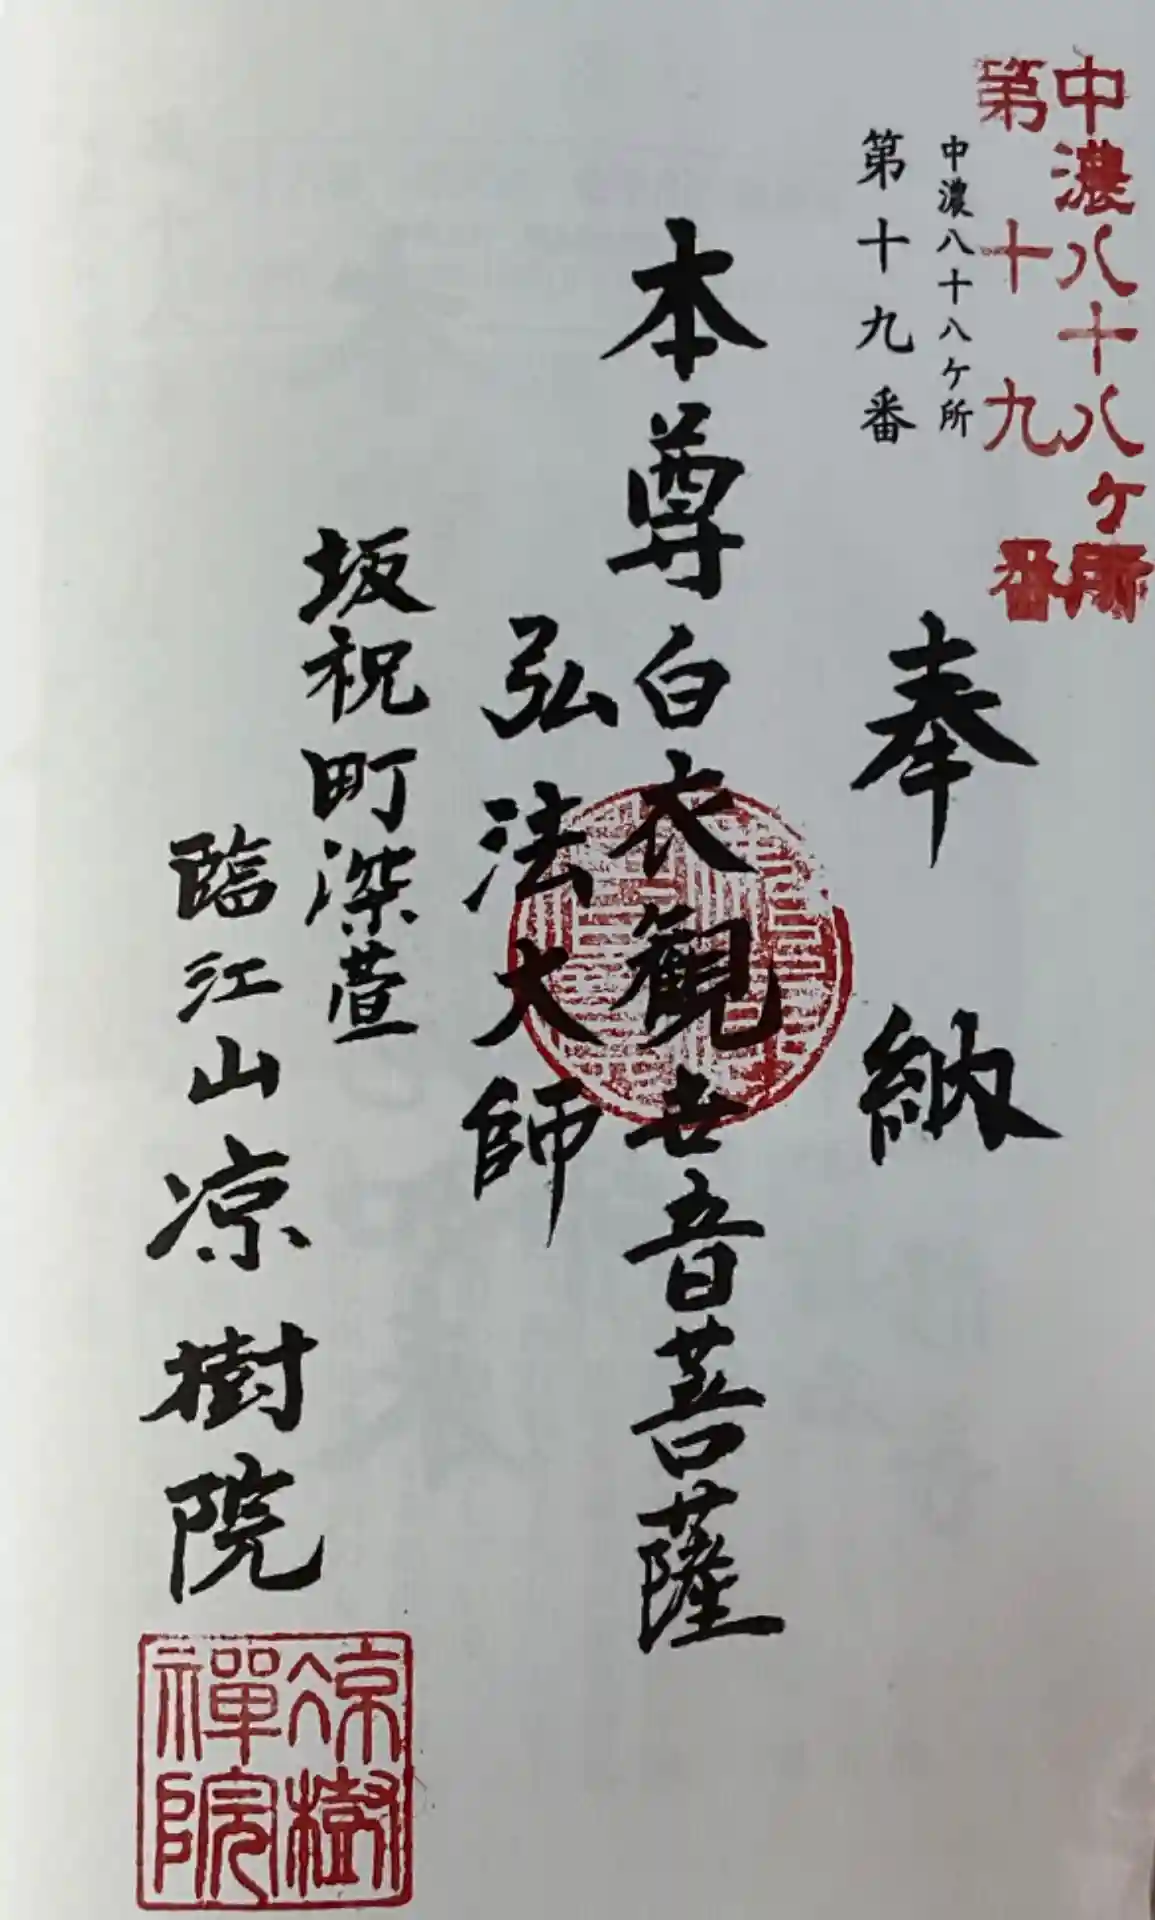 中濃八十八ヶ所
第十九番
中濃八十八ヶ所
第十九番
奉納
本尊白衣観世音菩薩
弘法大師
坂祝町深萱
臨江山凉樹院
凉樹
禅院